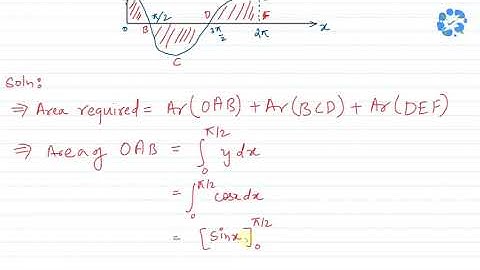 π/2 D F
0 B 3π/2 2π x
C
Soln:
⇒ Area required = Ar(OAB) + Ar(BCD) + Ar(DEF)
⇒ Area of OAB = ∫₀^π/2 y dx
= ∫₀^π/2 cosx dx
= [sinx]₀^π/2